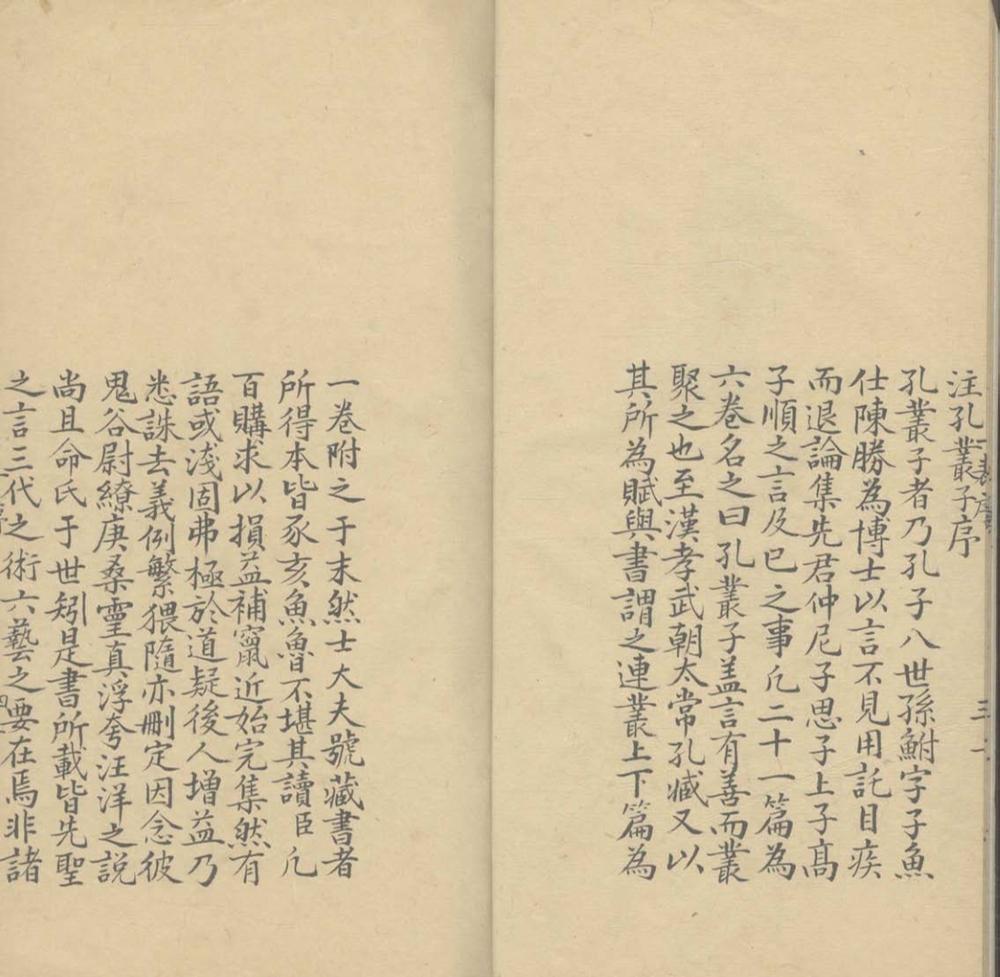 注孔叢子序
孔叢子者乃孔子八世孫鮒字子魚
仕陳勝為博士以言不見用託目疾
而退論集先君仲尼子思子上子高
子順之言及己之事凡二十一篇為
六卷名之曰孔叢子盖言有善而叢
聚之也至漢孝武朝太常孔臧又以
其所為賦與書謂之連叢上下篇為
一卷附之于末然士大夫號藏書者
所得本皆豕亥魚魯不堪其讀臣凡
百購求以損益補竄近始完集然有
語或淺固弗極於道疑後人增益乃
悉誅去義例繁猥隨亦刪定因念彼
鬼谷尉繚庚桑靈真浮夸汪洋之説
尚且命氏于世矧是書所載皆先聖
之言三代之術六藝之要在焉非諸